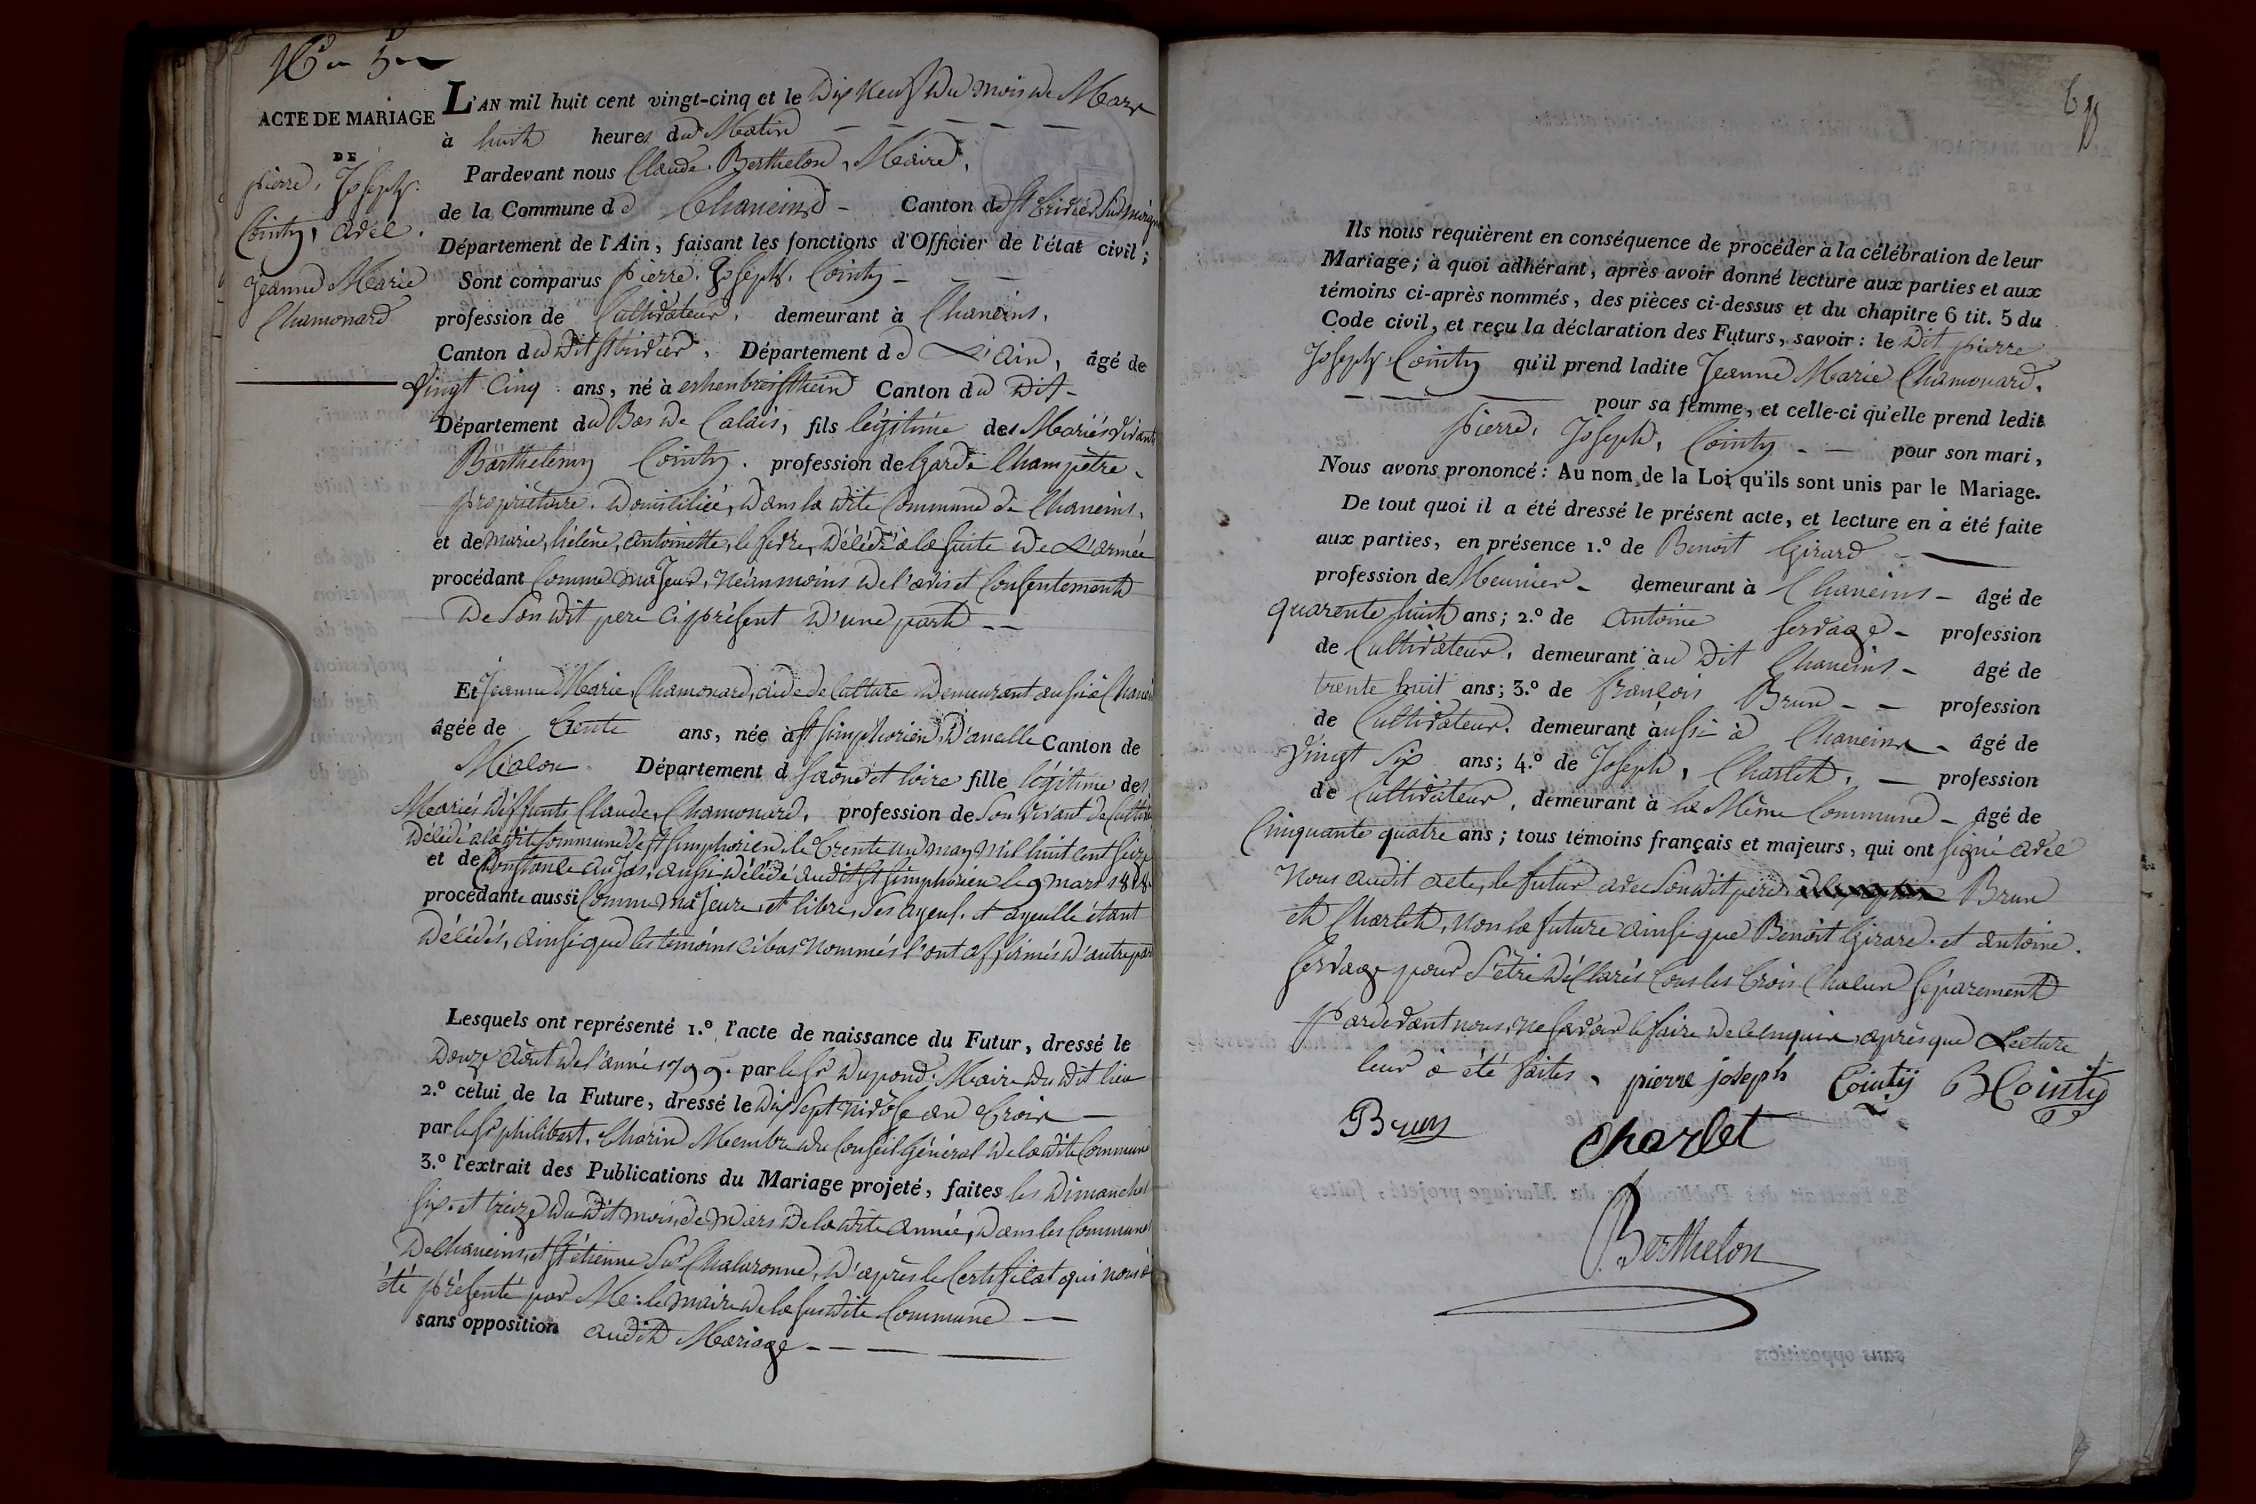 N.o 5
ACTE DE MARIAGE
DE
pierre, Joseph.
Cointy, avec.
Jeanne Marie
Chamonard
L'AN mil huit cent vingt-cinq et le Dix Neuf Du mois de Mars
à huit heures du Matin
Pardevant nous Claude Berthelon, Maire,
de la Commune de Chaneins - Canton de St trivier Sur Moignans
Département de l'Ain, faisant les fonctions d'Officier de l'état civil;
Sont comparus pierre, Joseph, Cointy -
profession de Cultivateur, demeurant à Chaneins,
Canton du Dit St trivier, Département de L'ain, âgé de
Vingt Cinq ans, né à erhenbreisthein Canton du Dit -
Département du Bas De Calais, fils légitime des Mariés vivant
Barthelemy Cointy. profession de Garde Champêtre,
propriétaire, domicilié, Dans la dite Commune de Chaneins,
et de marie, hélène, antoinette, lefevre, Décédée à la suite De L'armée
procédant Comme majeur, Néanmoins de l'avis et Consentement
De Son dit pere Ci présent D'une part --
Et Jeanne Marie, Chamonard, aide de Culture demeurant aussi à Chaneins
âgée de trente ans, née à St Simphorien, D'ancelle Canton de
Macon Département de Saône et loire fille légitime des
Mariés Deffunts Claude, Chamonard, profession de Son vivant de Cultiv
Décédé a la dite Commune De St Simphorien, le trente un may mil huit cent seize
et de Constance aujas, aussi Décédée audit St Simphorien le 9 mars 1818
procédante aussi Comme majeure et libre, Ses ayeuls et ayeulle étant
Décédés, ainsi que les témoins ci bas Nommés l'ont affirmés D'autre part
Lesquels ont représenté 1.º l'acte de naissance du Futur, dressé le
Douze Août de l'année 1799. par le Sr Dupond. Maire du dit lieu
2.º celui de la Future, dressé le Dix Sept nivôse an trois -
par le Sr philibert, Charin Membre du Conseil Général De la dite Commune
3.º l'extrait des Publications du Mariage projeté, faites les Dimanches
Six et treize du dit mois, de mars De la dite année, Dans les Communes
De Chaneins, et St étienne Sur Chalaronne, D'après le Certificat qui nous à
été présenté par Mr. le maire De la Susdite Commune -
sans opposition audit Mariage - - -
Ils nous requièrent en conséquence de procéder à la célébration de leur
Mariage; à quoi adhérant, après avoir donné lecture aux parties et aux
témoins ci-après nommés, des pièces ci-dessus et du chapitre 6 tit. 5 du
Code civil, et reçu la déclaration des Futurs, savoir: le Dit pierre
Joseph Cointy qu'il prend ladite Jeanne Marie Chamonard,
pour sa femme, et celle-ci qu'elle prend ledit
pierre, Joseph, Cointy - - pour son mari,
Nous avons prononcé: Au nom de la Loi qu'ils sont unis par le Mariage.
De tout quoi il a été dressé le présent acte, et lecture en a été faite
aux parties, en présence 1.º de Benoit Girard -
profession de Meunier - demeurant à Chaneins - âgé de
quarente huit ans; 2.º de antoine Servage - profession
de Cultivateur, demeurant au Dit Chaneins - âgé de
trente huit ans; 3.º de françois Brun - - profession
de Cultivateur. demeurant aussi à Chaneins - âgé de
Vingt Six ans; 4.º de Joseph, Charlet, - profession
de Cultivateur, demeurant à la Même Commune - âgé de
Cinquante quatre ans; tous témoins français et majeurs, qui ont signé avec
Nous audit acte, le futur avec Son dit père, Brun
et Charlet, Non la future ainsi que Benoit Girard, et antoine
Servage pour S'être Déclarés tous les trois Chacun séparement
pardevant nous, ne Savoir le faire De ce enquis, après que Lecture
leur à été faites, pierre joseph Cointy B Cointy
Brun
Charlet
Berthelon